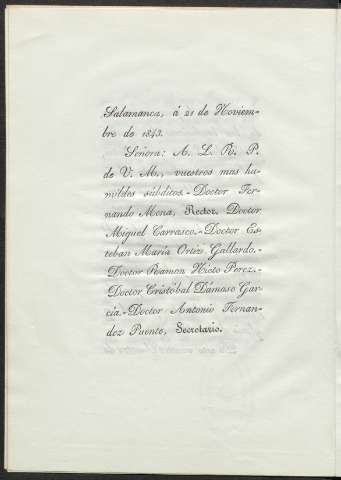 Salamanca, á 21 de Noviem-
bre de 1843.
Señora: A. L. R. P.
de V. M., vuestros mas hu-
mildes súbditos.-Doctor Fer-
nando Mena, Rector. Doctor
Miguel Carrasco.-Doctor Es-
teban María Ortiz Gallardo.-
Doctor Ramon Nieto Perez.-
-Doctor Cristóbal Dámaso Gar-
cía.-Doctor Antonio Fernan-
dez Puente, Secretario.